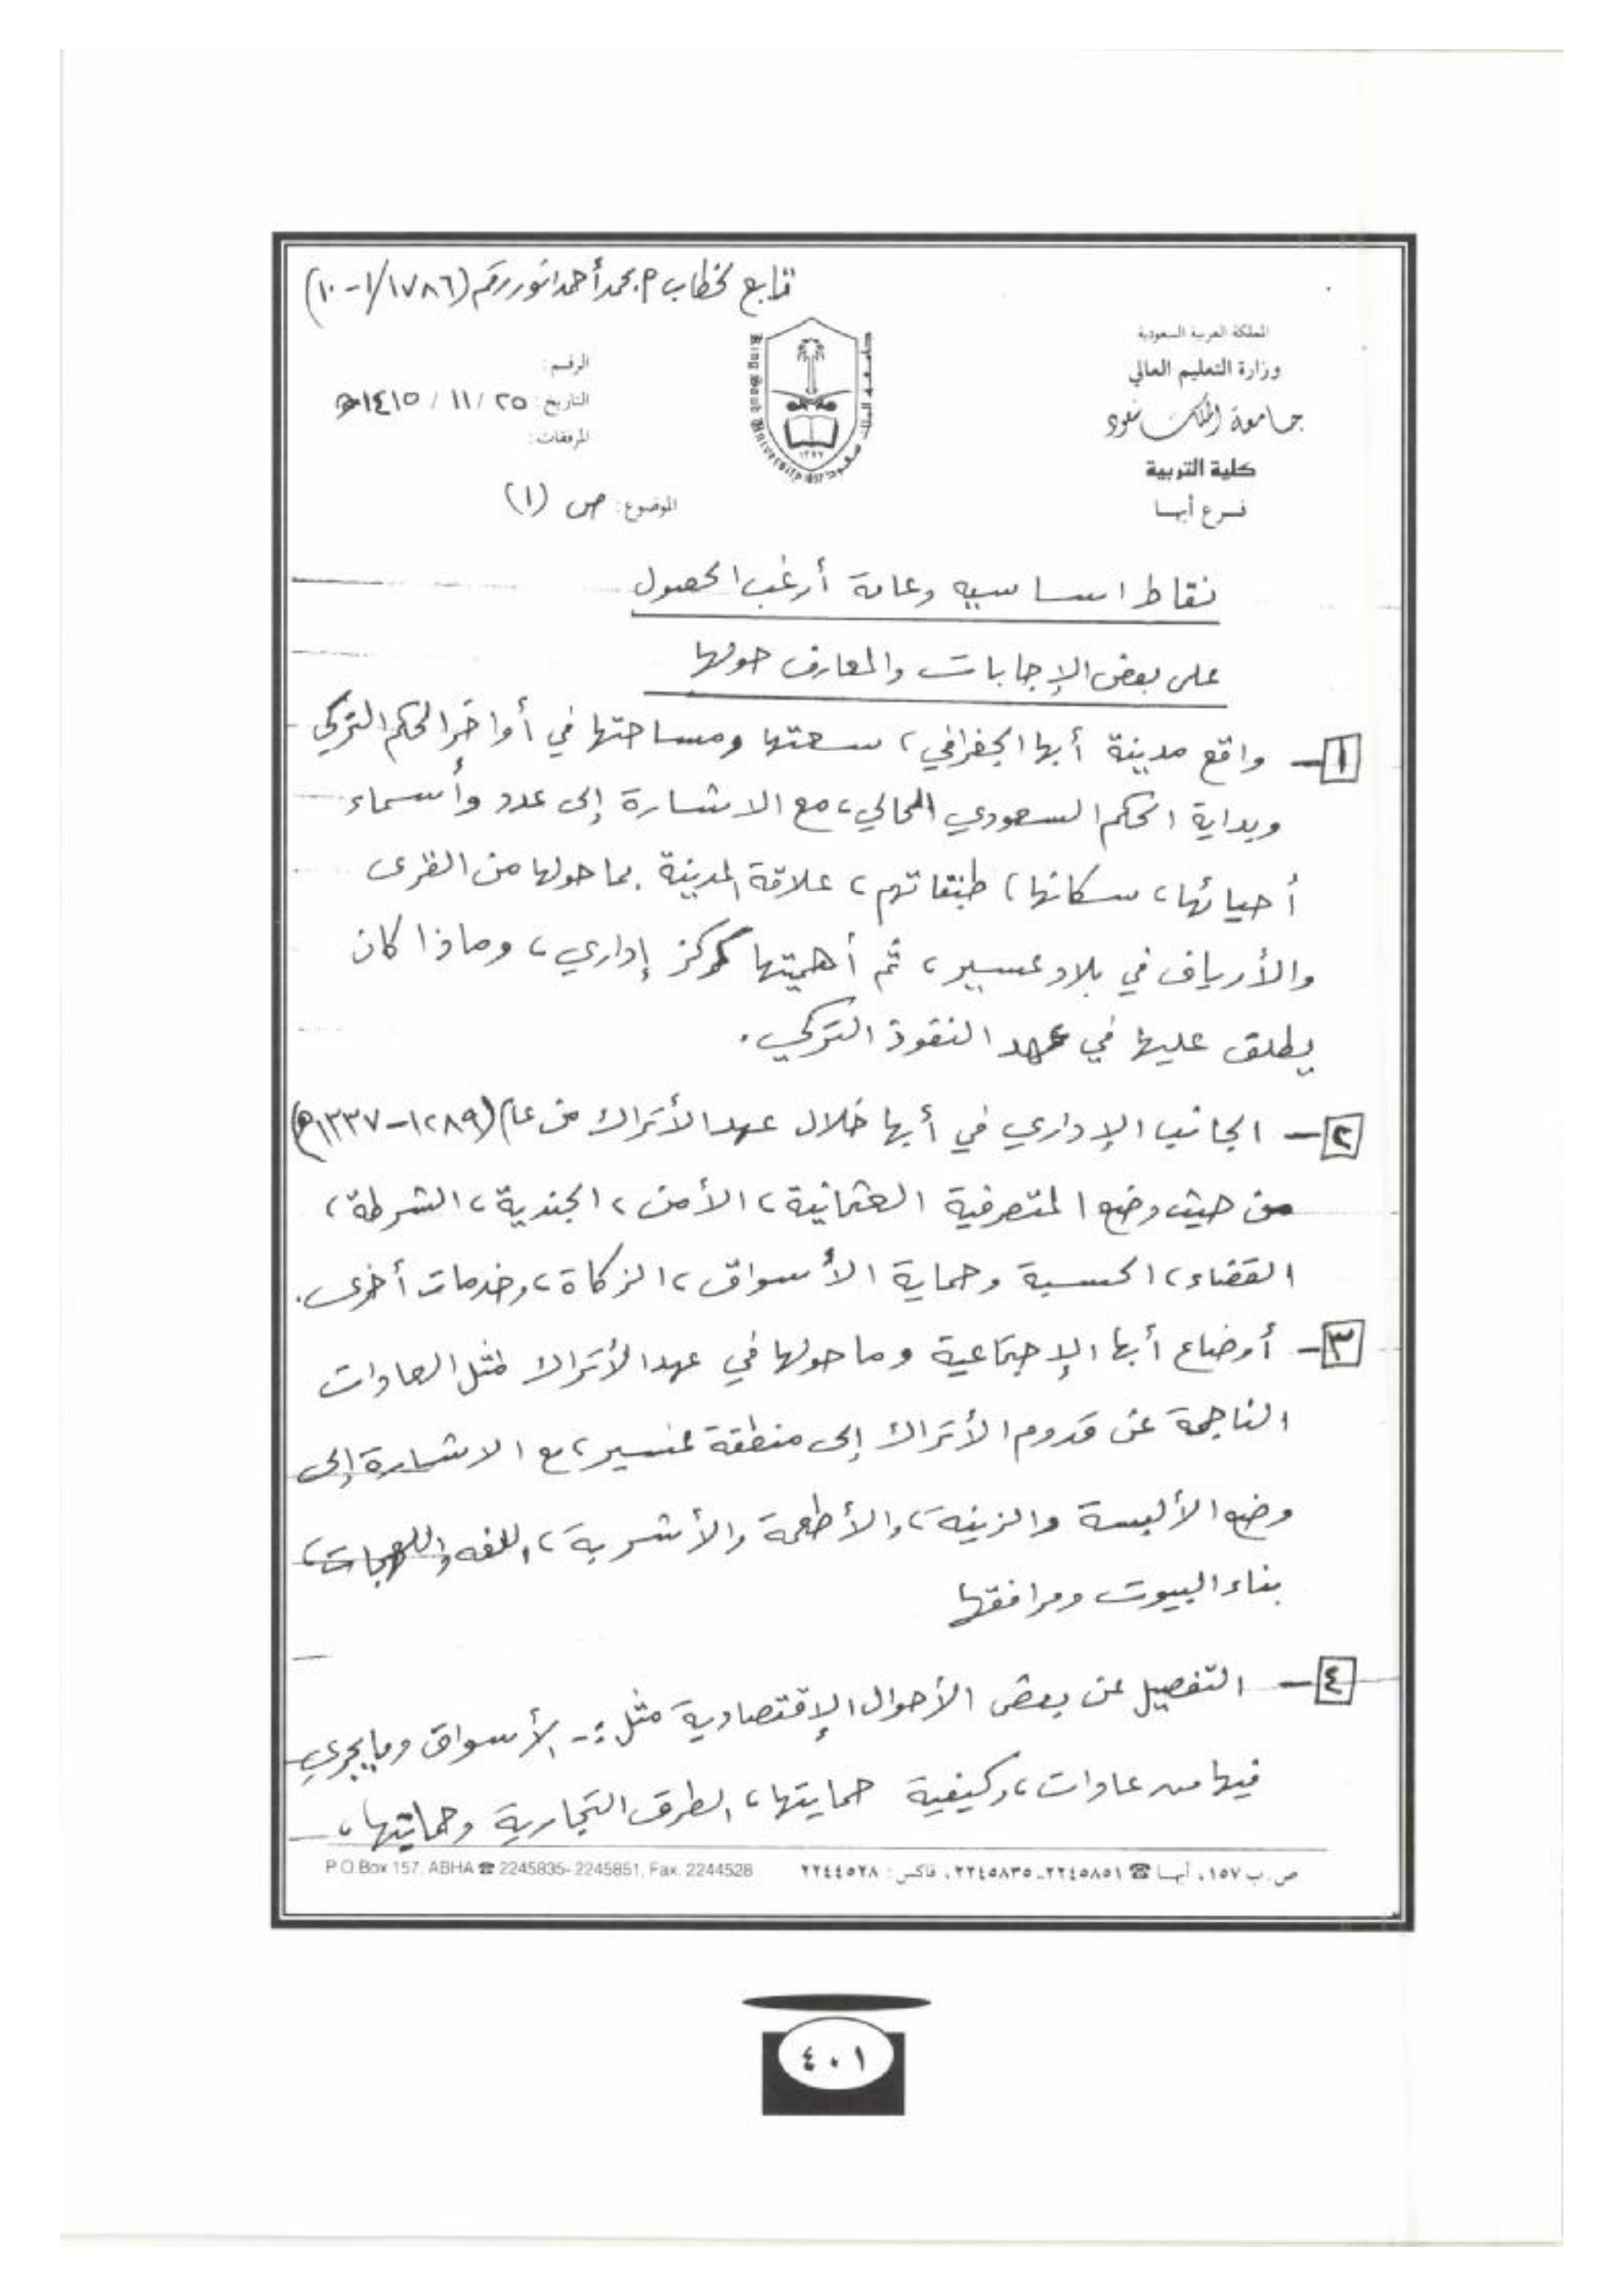 تابع لخطاب م. محمد أحمد انور رقم (١/١٧٨٦-١٠)
المملكة العربية السعودية
وزارة التعليم العالي
جامعة الملك سعود
كلية التربية
فرع أبها
King Saud University
١٣٧٧
1957
الرقم:
التاريخ: ٢٥ / ١١ / ١٤١٥هـ
المرفقات:
الموضوع: ص (١)
نقاط اساسيه وعامة أرغب الحصول
على بعض الإجابات والمعارف حولها
١- واقع مدينة أبها الجغرافي، سعتها ومساحتها في أواخر الحكم التركي
وبداية الحكم السعودي الحالي، مع الاشارة إلى عدد وأسماء
أحيائها، سكانها، طبقاتهم، علاقة المدينة بما حولها من القرى
والأرياف في بلاد عسير، ثم أهميتها كمركز إداري، وماذا كان
يطلق عليها في عهد النفوذ التركي.
٢- الجانب الإداري في أبها خلال عهد الأتراك من عام (١٢٨٩-١٣٣٧هـ)
من حيث وضع المتصرفية العثمانية، الأمن، الجندية، الشرطة،
القضاء، الحسبة وحماية الأسواق، الزكاة، وخدمات أخرى.
٣- أوضاع أبها الإجتماعية وما حولها في عهد الأتراك مثل العادات
الناجمة عن قدوم الأتراك إلى منطقة عسير، مع الاشارة إلى
وضع الألبسة والزينة، والأطعمة والأشربة، اللغه واللهجات،
بناء البيوت ومرافقها
٤- التفصيل عن بعض الأحوال الإقتصادية مثل :- الأسواق وما يجري
فيها من عادات، وكيفية حمايتها، الطرق التجارية وحمايتها،
ص.ب ١٥٧، أبها ☎ ٢٢٤٥٨٥١-٢٢٤٥٨٣٥، فاكس: ٢٢٤٤٥٢٨
P.O.Box 157. ABHA ☎ 2245835- 2245851, Fax. 2244528
٤٠١